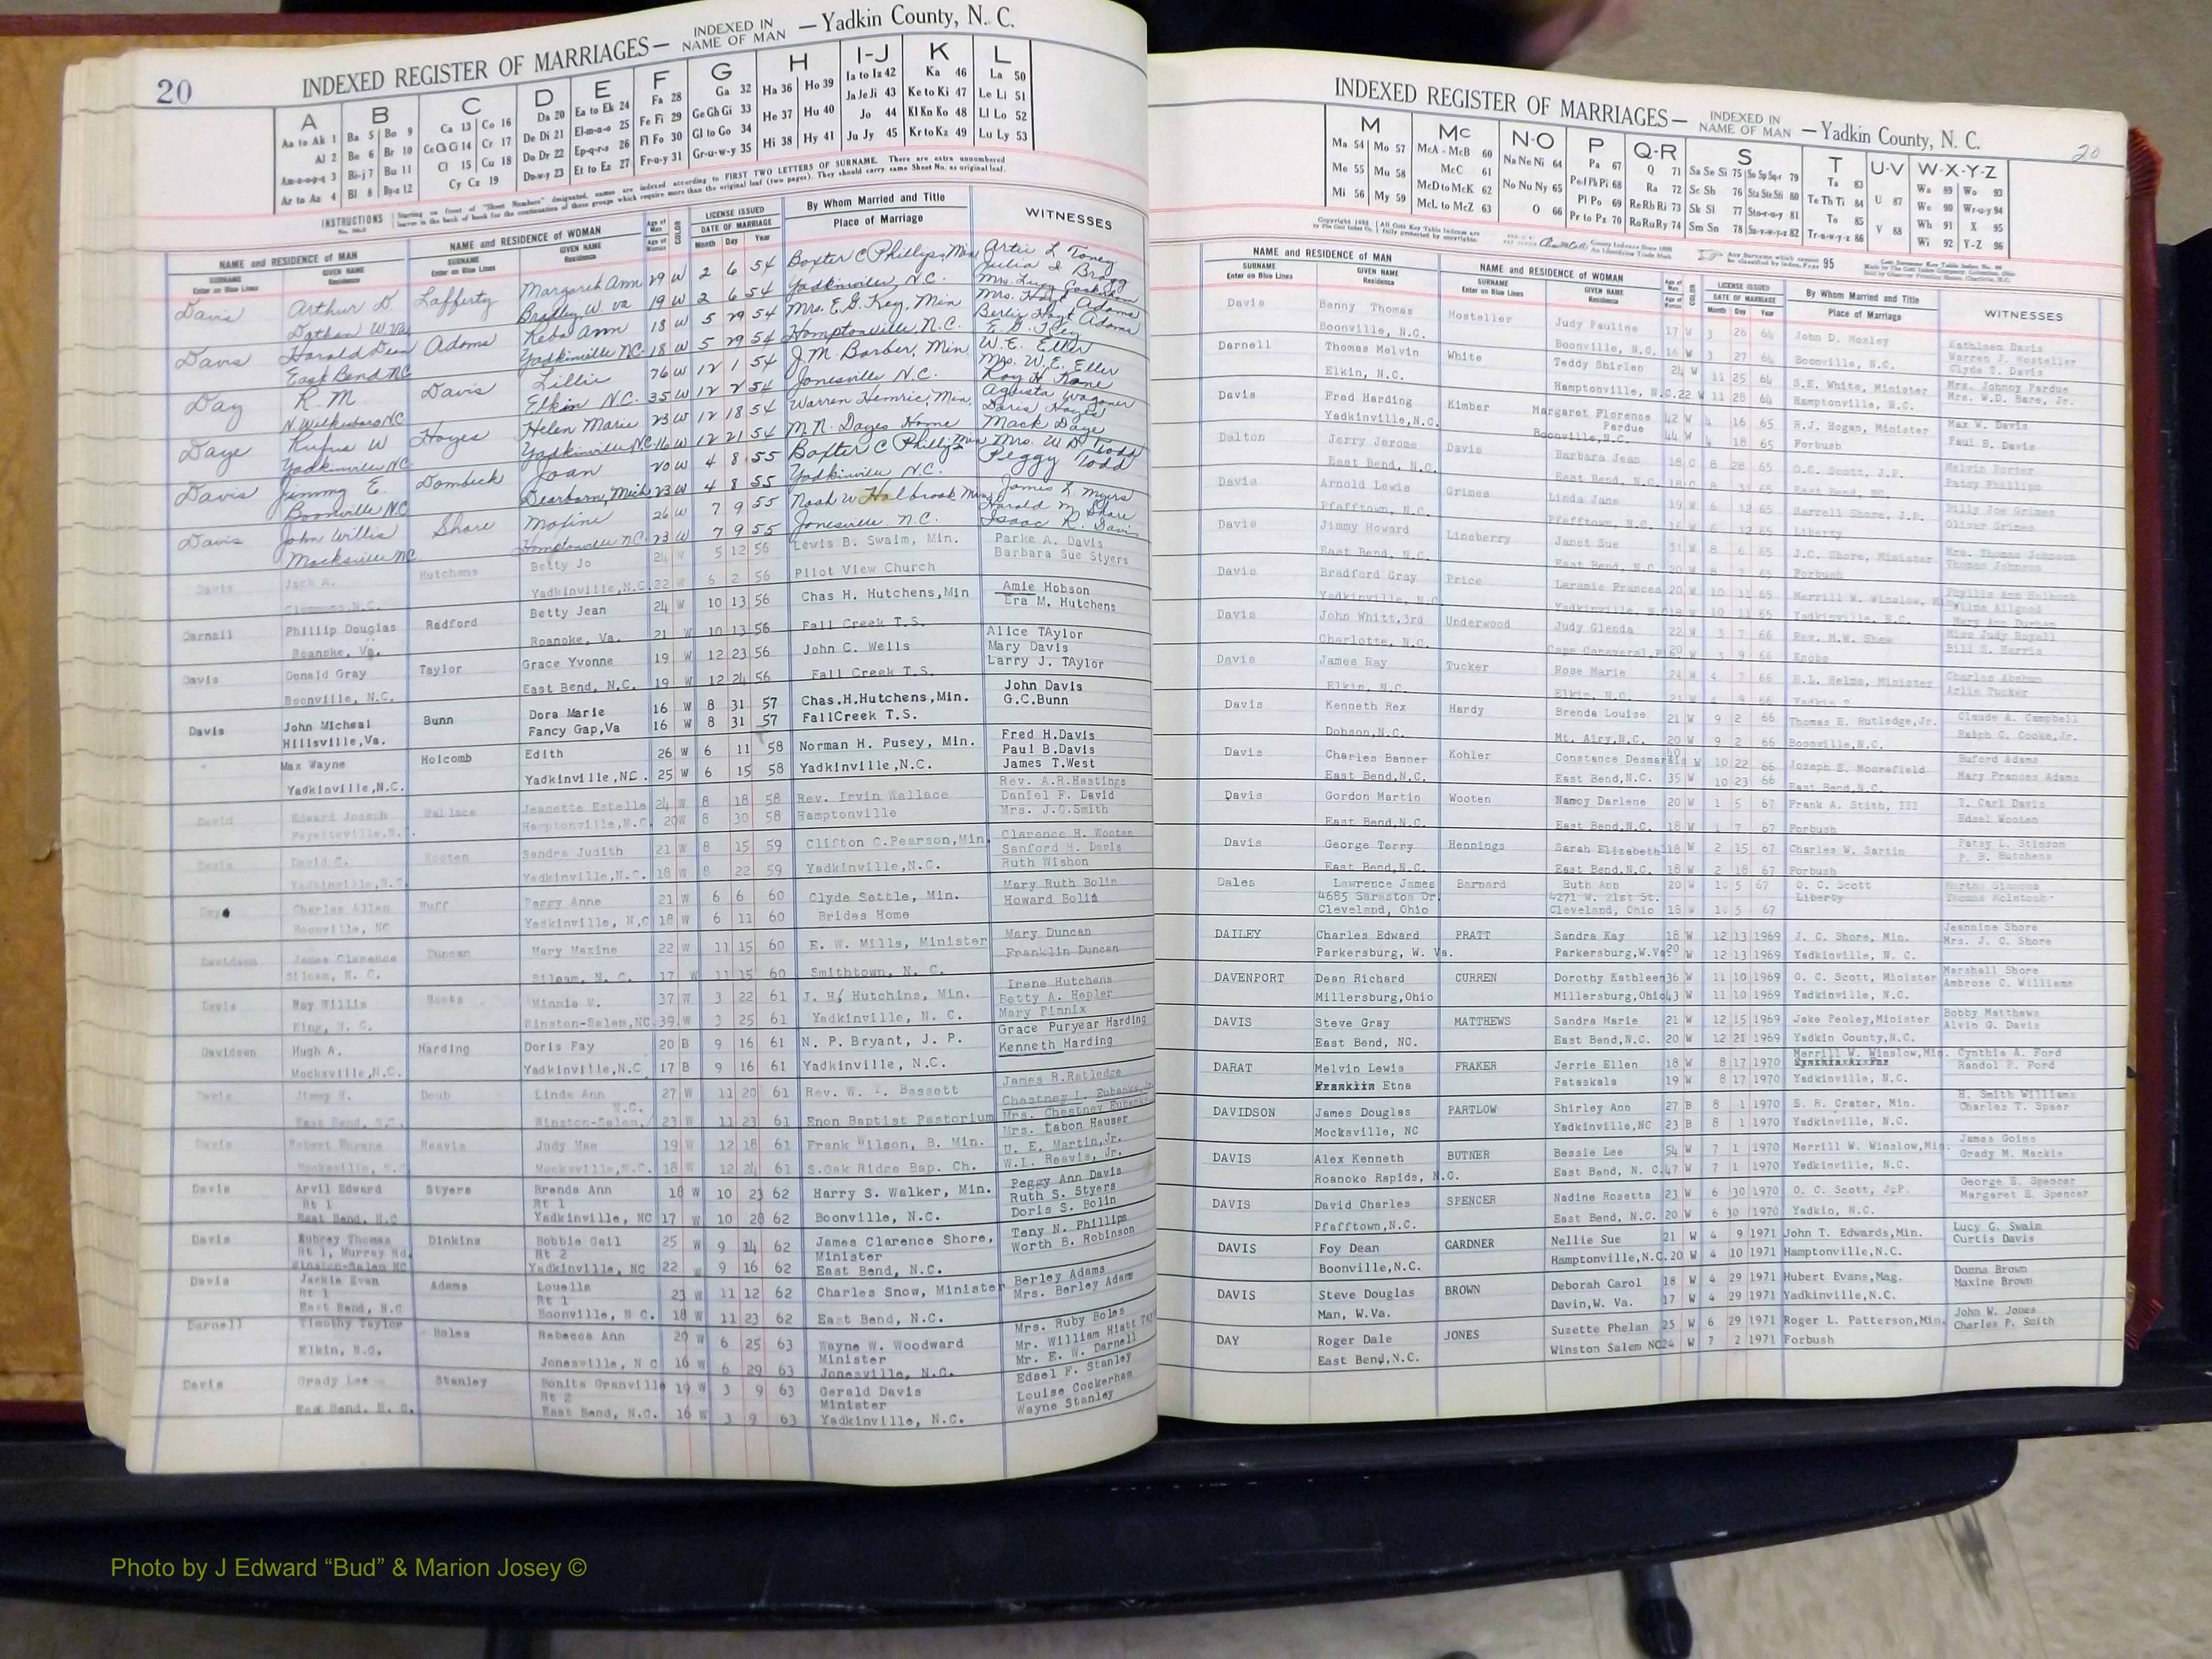 20
INDEXED REGISTER OF MARRIAGES— INDEXED IN NAME OF MAN — Yadkin County, N. C.
A B C D E F G H I-J K L
Aa to Ah 1 Ba 5 Bo 9 Ca 13 Co 16 Da 20 Ea to Ek 24 Fa 28 Ga 32 Ha 36 Ho 39 Ia to Iz 42 Ka 46 La 50
Al 2 Be 6 Br 10 Ce Ch Ci 14 Cr 17 De Di 21 El-m-n-o 25 Fe Fi 29 Ge Gh Gi 33 He 37 Hu 40 Ja Je Ji 43 Ke to Ki 47 Le Li 51
Am-n-o-p-q 3 Bi-j 7 Bu 11 Cl 15 Cu 18 Do Dr 22 Ep-q-r-s 26 Fl Fo 30 Gl to Go 34 Hi 38 Hy 41 Jo 44 Kl Kn Ko 48 Ll Lo 52
Ar to Az 4 Bl 8 By-z 12 Cy Cz 19 Du-w-y 23 Et to Ez 27 Fr-u-y 31 Gr-u-w-y 35 Ju Jy 45 Kr to Kz 49 Lu Ly 53
INSTRUCTIONS
NAME and RESIDENCE OF MAN NAME and RESIDENCE OF WOMAN COLOR LICENSE ISSUED By Whom Married and Title WITNESSES
SURNAME GIVEN NAME SURNAME GIVEN NAME DATE OF MARRIAGE Place of Marriage
Enter on Blue Lines Residence Enter on Blue Lines Residence Month Day Year
Davis Arthur D. Lafferty Margareh Ann 29 W 2 6 54 Baxter C Phillips, Min Artie L Toney
Dothan W. Va Bradley W. va 19 W 2 6 54 Yadkinville, N.C.
Davis Harold Dean Adams Reba Ann 18 W 5 29 54 Mrs. E.G. Key, Min Mrs. Hoyt Adams
East Bend NC Yadkinville NC 18 W 5 29 54 Hamptonville, N.C.
Day R. M. Davis Lillie 76 W 12 1 54 J.M. Barber, Min W.E. Eller
N. Wilkesboro NC Elkin N.C. 35 W 12 2 54 Jonesville N.C. Mrs. W.E. Eller
Daye Rufus W Hayes Helen Marie 23 W 12 18 54 Warren Hemric, Min
Yadkinville NC Yadkinville NC 16 W 12 21 54 M.N. Dayes Home Mack Daye
Davis Jimmy E. Dombeck Joan 20 W 4 8 55 Baxter C Phillips Min Mrs. W D. Todd
Boonville N.C. Dearborn, Mich 23 W 4 8 55 Yadkinville N.C. Peggy Todd
Davis John Willis Share 26 W 7 9 55 Noah W Holbrook Min James L. Myers
Mocksville NC Hamptonville NC 23 W 7 9 55 Jonesville N.C. Isaac R. Davis
Davis Jack A. Hutchens Betty Jo 24 W 5 12 56 Lewis B. Swaim, Min. Parke A. Davis
Clemmons N.C. Yadkinville, N.C. 22 W 6 2 56 Pilot View Church Barbara Sue Styers
Darnall Phillip Douglas Radford Betty Jean 24 W 10 13 56 Chas H. Hutchens, Min Amie Hobson
Roanoke, Va. Roanoke, Va. 21 W 10 13 56 Fall Creek T.S. Era M. Hutchens
Davis Donald Gray Taylor Grace Yvonne 19 W 12 23 56 John C. Wells Alice TAylor
Mary Davis
Boonville, N.C. East Bend, N.C. 19 W 12 24 56 Fall Creek T.S. Larry J. TAylor
Davis John Micheal Bunn Dora Marie 16 W 8 31 57 Chas.H.Hutchens,Min. John Davis
Hillsville,Va. Fancy Gap,Va 16 W 8 31 57 FallCreek T.S. G.C.Bunn
" Max Wayne Holcomb Edith 26 W 6 11 58 Norman H. Pusey, Min. Fred H.Davis
Paul B.Davis
Yadkinville,N.C. Yadkinville,NC. 25 W 6 15 58 Yadkinville,N.C. James T.West
David Edward Joseph Wallace Jeanette Estelle 24 W 8 18 58 Rev. Irvin Wallace Rev. A.R.Hastings
Daniel F. David
Fayetteville,N. Hamptonville,N.C. 20 W 8 30 58 Hamptonville Mrs. J.G.Smith
Davis David C. Wooten Sandra Judith 21 W 8 15 59 Clifton C.Pearson,Min. Clarence H. Wooten
Sanford H. Davis
Yadkinville,N.C. Yadkinville,N.C. 18 W 8 22 59 Yadkinville,N.C. Ruth Wishon
Day Charles Allen Huff Peggy Anne 21 W 6 6 60 Clyde Settle, Min. Mary Ruth Bolin
Boonville, NC Yadkinville, N,C 18 W 6 11 60 Brides Home Howard Bolin
Davidson James Clarence Duncan Mary Maxine 22 W 11 15 60 E. W. Mills, Minister Mary Duncan
Siloam, N. C. Siloam, N. C. 17 W 11 15 60 Smithtown, N. C. Franklin Duncan
Davis Ray Willis Hooks Minnie M. 37 W 3 22 61 J. H. Hutchins, Min. Irene Hutchens
Betty A. Hepler
King, N. C. Winston-Salem,NC. 39 W 3 25 61 Yadkinville, N. C. Mary Pinnix
Davidson Hugh A. Harding Doris Fay 20 B 9 16 61 N. P. Bryant, J. P. Grace Puryear Harding
Mocksville,N.C. Yadkinville,N.C 17 B 9 16 61 Yadkinville, N.C. Kenneth Harding
Davis Jimmy H. Doub Linda Ann 27 W 11 20 61 Rev. W. T. Bassett James R.Ratledge
N.C. Chestney L. Eubanks,Jr.
East Bend, N.C. Winston-Salem, 23 W 11 23 61 Enon Baptist Pastorium Mrs. Chestney Eubanks
Davis Robert Eugene Reavis Judy Mae 19 W 12 18 61 Frank Wilson, B. Min. Mrs. Eabon Hauser
U. E. Martin,Jr.
Mocksville, N.C. Mocksville,N.C. 18 W 12 24 61 S.Oak Ridge Bap. Ch. W.L. Reavis, Jr.
Davis Arvil Edward Styers Brenda Ann 18 W 10 23 62 Harry S. Walker, Min. Peggy Ann Davis
Rt 1 Rt 1 Ruth S. Styers
East Bend, N.C Yadkinville, NC 17 W 10 28 62 Boonville, N.C. Doris S. Bolin
Davis Aubrey Thomas Dinkins Bobbie Gail 25 W 9 14 62 James Clarence Shore, Tony N. Phillips
Rt 1, Murray Rd. Rt 2 Minister Worth B. Robinson
Winston-Salem NC Yadkinville, NC 22 W 9 16 62 East Bend, N.C.
Davis Jackie Evan Adams Louella 23 W 11 12 62 Charles Snow, Minister Berley Adams
Rt 1 Rt 1 Mrs. Berley Adams
East Bend, N.C Boonville, N C. 18 W 11 23 62 East Bend, N.C.
Darnell Timothy Taylor Boles Rebecca Ann 20 W 6 25 63 Wayne W. Woodward Mrs. Ruby Boles
Minister Mr. William Hiatt
Elkin, N.C. Jonesville, N C 16 W 6 29 63 Jonesville, N.C. Mr. E. W. Darnell
Davis Grady Lee Stanley Bonita Granville 19 W 3 9 63 Gerald Davis Edsel F. Stanley
Rt 2 Minister Louise Cookerham
East Bend, N. C. East Bend, N.C. 16 W 3 9 63 Yadkinville, N.C. Wayne Stanley
INDEXED REGISTER OF MARRIAGES— INDEXED IN NAME OF MAN — Yadkin County, N. C.
20
M Mc N-O P Q-R S T U-V W-X-Y-Z
Ma 54 Mo 57 McA - McB 60 Na Ne Ni 64 Pa 67 Q 71 Sa Se Si 75 So Sp Sq-r 79 Ta 83 U 87 Wa 89 Wo 93
Me 55 Mu 58 McC 61 No Nu Ny 65 Pe-f Ph Pi 68 Ra 72 Sc Sh 76 Sta Ste Sti 80 Te Th Ti 84 V 88 We 90 Wr-u-y 94
Mi 56 My 59 McD to McK 62 O 66 Pl Po 69 Re Rh Ri 73 Sk Sl 77 Sto-r-u-y 81 To 85 Wh 91 X 95
McL to McZ 63 Pr to Pz 70 Ro Ru Ry 74 Sm Sn 78 Su-v-w-y-z 82 Tr-u-w-y-z 86 Wi 92 Y-Z 96
NAME and RESIDENCE OF MAN NAME and RESIDENCE OF WOMAN COLOR LICENSE ISSUED By Whom Married and Title WITNESSES
SURNAME GIVEN NAME SURNAME GIVEN NAME DATE OF MARRIAGE Place of Marriage
Enter on Blue Lines Residence Enter on Blue Lines Residence Month Day Year
Davis Benny Thomas Mosteller Judy Pauline 17 W 3 26 64 John D. Moxley Kathleen Davis
Warren J. Mosteller
Boonville, N.C. Boonville, N.C. 16 W 3 27 64 Boonville, N.C. Clyde T. Davis
Darnell Thomas Melvin White Teddy Shirlen 24 W 11 25 64 S.E. White, Minister Mrs. Johnny Pardue
Elkin, N.C. Hamptonville, N.C. 22 W 11 28 64 Hamptonville, N.C. Mrs. W.D. Bare, Jr.
Davis Fred Harding Kimber Margaret Florence 42 W 4 16 65 R.J. Hogan, Minister Max W. Davis
Pardue
Yadkinville,N.C. Boonville,N.C. 44 W 4 18 65 Forbush Paul B. Davis
Dalton Jerry Jerome Davis Barbara Jean 18 C 8 28 65 O.C. Scott, J.P. Melvin Porter
East Bend, N.C. East Bend, N.C. 18 C 8 31 65 East Bend, NC Patsy Phillips
Davis Arnold Lewis Grimes Linda Jane 19 W 6 12 65 Harrell Shore, J.P. Billy Joe Grimes
Pfafftown, N.C. Pfafftown, N.C. 16 W 6 12 65 Liberty Oliver Grimes
Davis Jimmy Howard Lineberry Janet Sue 31 W 8 6 65 J.C. Shore, Minister Mrs. Thomas Johnson
East Bend, N.C. East Bend, N.C. 20 W 8 7 65 Forbush Thomas Johnson
Davis Bradford Gray Price Laramie Frances 20 W 10 11 65 Merrill W. Winslow, M Phyllis Ann Holcomb
Wilma Allgood
Yadkinville, N.C. Yadkinville, N.C. 18 W 10 11 65 Yadkinville, N.C. Mary Ann Durham
Davis John Whitt,3rd Underwood Judy Glenda 22 W 3 7 66 Rev. M.W. Shew Miss Judy Royall
Charlotte, N.C. Cape Canaveral,F 20 W 3 9 66 Knobs Bill S. Harris
Davis James Ray Tucker Rose Marie 24 W 4 7 66 E.L. Helms, Minister Charles Absher
Elkin, N.C. Elkin, N.C. 21 W 4 9 66 Arlie Tucker
Davis Kenneth Rex Hardy Brenda Louise 21 W 9 2 66 Thomas E. Rutledge,Jr. Claude A. Campbell
Dobson,N.C. Mt. Airy,N.C. 20 W 9 2 66 Boonville,N.C. Ralph C. Cooke,Jr.
Davis Charles Banner Kohler Constance Desmaraid 40 W 10 22 66 Joseph E. Moorefield Buford Adams
East Bend,N.C. East Bend,N.C. 35 W 10 23 66 East Bend,N.C. Mary Frances Adams
Davis Gordon Martin Wooten Nancy Darlene 20 W 1 5 67 Frank A. Stith, III T. Carl Davis
East Bend,N.C. East Bend,N.C. 18 W 1 7 67 Forbush Edsel Wooten
Davis George Terry Hennings Sarah Elizabeth 18 W 2 15 67 Charles W. Sartin Patsy L. Stinson
East Bend,N.C. East Bend,N.C. 18 W 2 18 67 Forbush P. B. Hutchens
Dales Lawrence James Barnard Ruth Ann 20 W 10 5 67 O. C. Scott Martha Simmons
4685 Saraston Dr. 4271 W. 21st St. Liberty Thomas McIntosh
Cleveland, Ohio Cleveland, Ohio 18 W 10 5 67
DAILEY Charles Edward PRATT Sandra Kay 18 W 12 13 1969 J. C. Shore, Min. Jeannine Shore
Parkersburg, W. Va. Parkersburg,W.Va. 20 W 12 13 1969 Yadkinville, N. C. Mrs. J. C. Shore
DAVENPORT Dean Richard CURREN Dorothy Kathleen 36 W 11 10 1969 O. C. Scott, Minister Marshall Shore
Millersburg,Ohio Millersburg,Ohio 43 W 11 10 1969 Yadkinville, N.C. Ambrose C. Williams
DAVIS Steve Gray MATTHEWS Sandra Marie 21 W 12 15 1969 Jake Penley,Minister Bobby Matthews
East Bend, NC. East Bend,N.C. 20 W 12 21 1969 Yadkin County,N.C. Alvin G. Davis
DARAT Melvin Lewis FRAKER Jerrie Ellen 18 W 8 17 1970 Merrill W. Winslow,Min. Cynthia A. Ford
Etna Pataskala 19 W 8 17 1970 Yadkinville, N.C. Randol P. Ford
DAVIDSON James Douglas PARTLOW Shirley Ann 27 B 8 1 1970 S. R. Crater, Min. H. Smith Williams
Mocksville, NC Yadkinville,NC 23 B 8 1 1970 Yadkinville, N.C. Charles T. Speer
DAVIS Alex Kenneth BUTNER Bessie Lee 54 W 7 1 1970 Merrill W. Winslow,Min. James Goins
Roanoke Rapids, N.C. East Bend, N. C. 47 W 7 1 1970 Yadkinville, N.C. Grady M. Mackie
DAVIS David Charles SPENCER Nadine Rosetta 23 W 6 30 1970 O. C. Scott, J.P. George E. Spencer
Pfafftown,N.C. East Bend, N.C. 20 W 6 30 1970 Yadkin, N.C. Margaret E. Spencer
DAVIS Foy Dean GARDNER Nellie Sue 21 W 4 9 1971 John T. Edwards,Min. Lucy G. Swaim
Boonville,N.C. Hamptonville,N.C. 20 W 4 10 1971 Hamptonville,N.C. Curtis Davis
DAVIS Steve Douglas BROWN Deborah Carol 18 W 4 29 1971 Hubert Evans,Mag. Donna Brown
Man, W.Va. Davin,W. Va. 17 W 4 29 1971 Yadkinville,N.C. Maxine Brown
DAY Roger Dale JONES Suzette Phelan 25 W 6 29 1971 Roger L. Patterson,Min. John W. Jones
East Bend,N.C. Winston Salem NC 24 W 7 2 1971 Forbush Charles P. Smith
Photo by J Edward “Bud” & Marion Josey ©